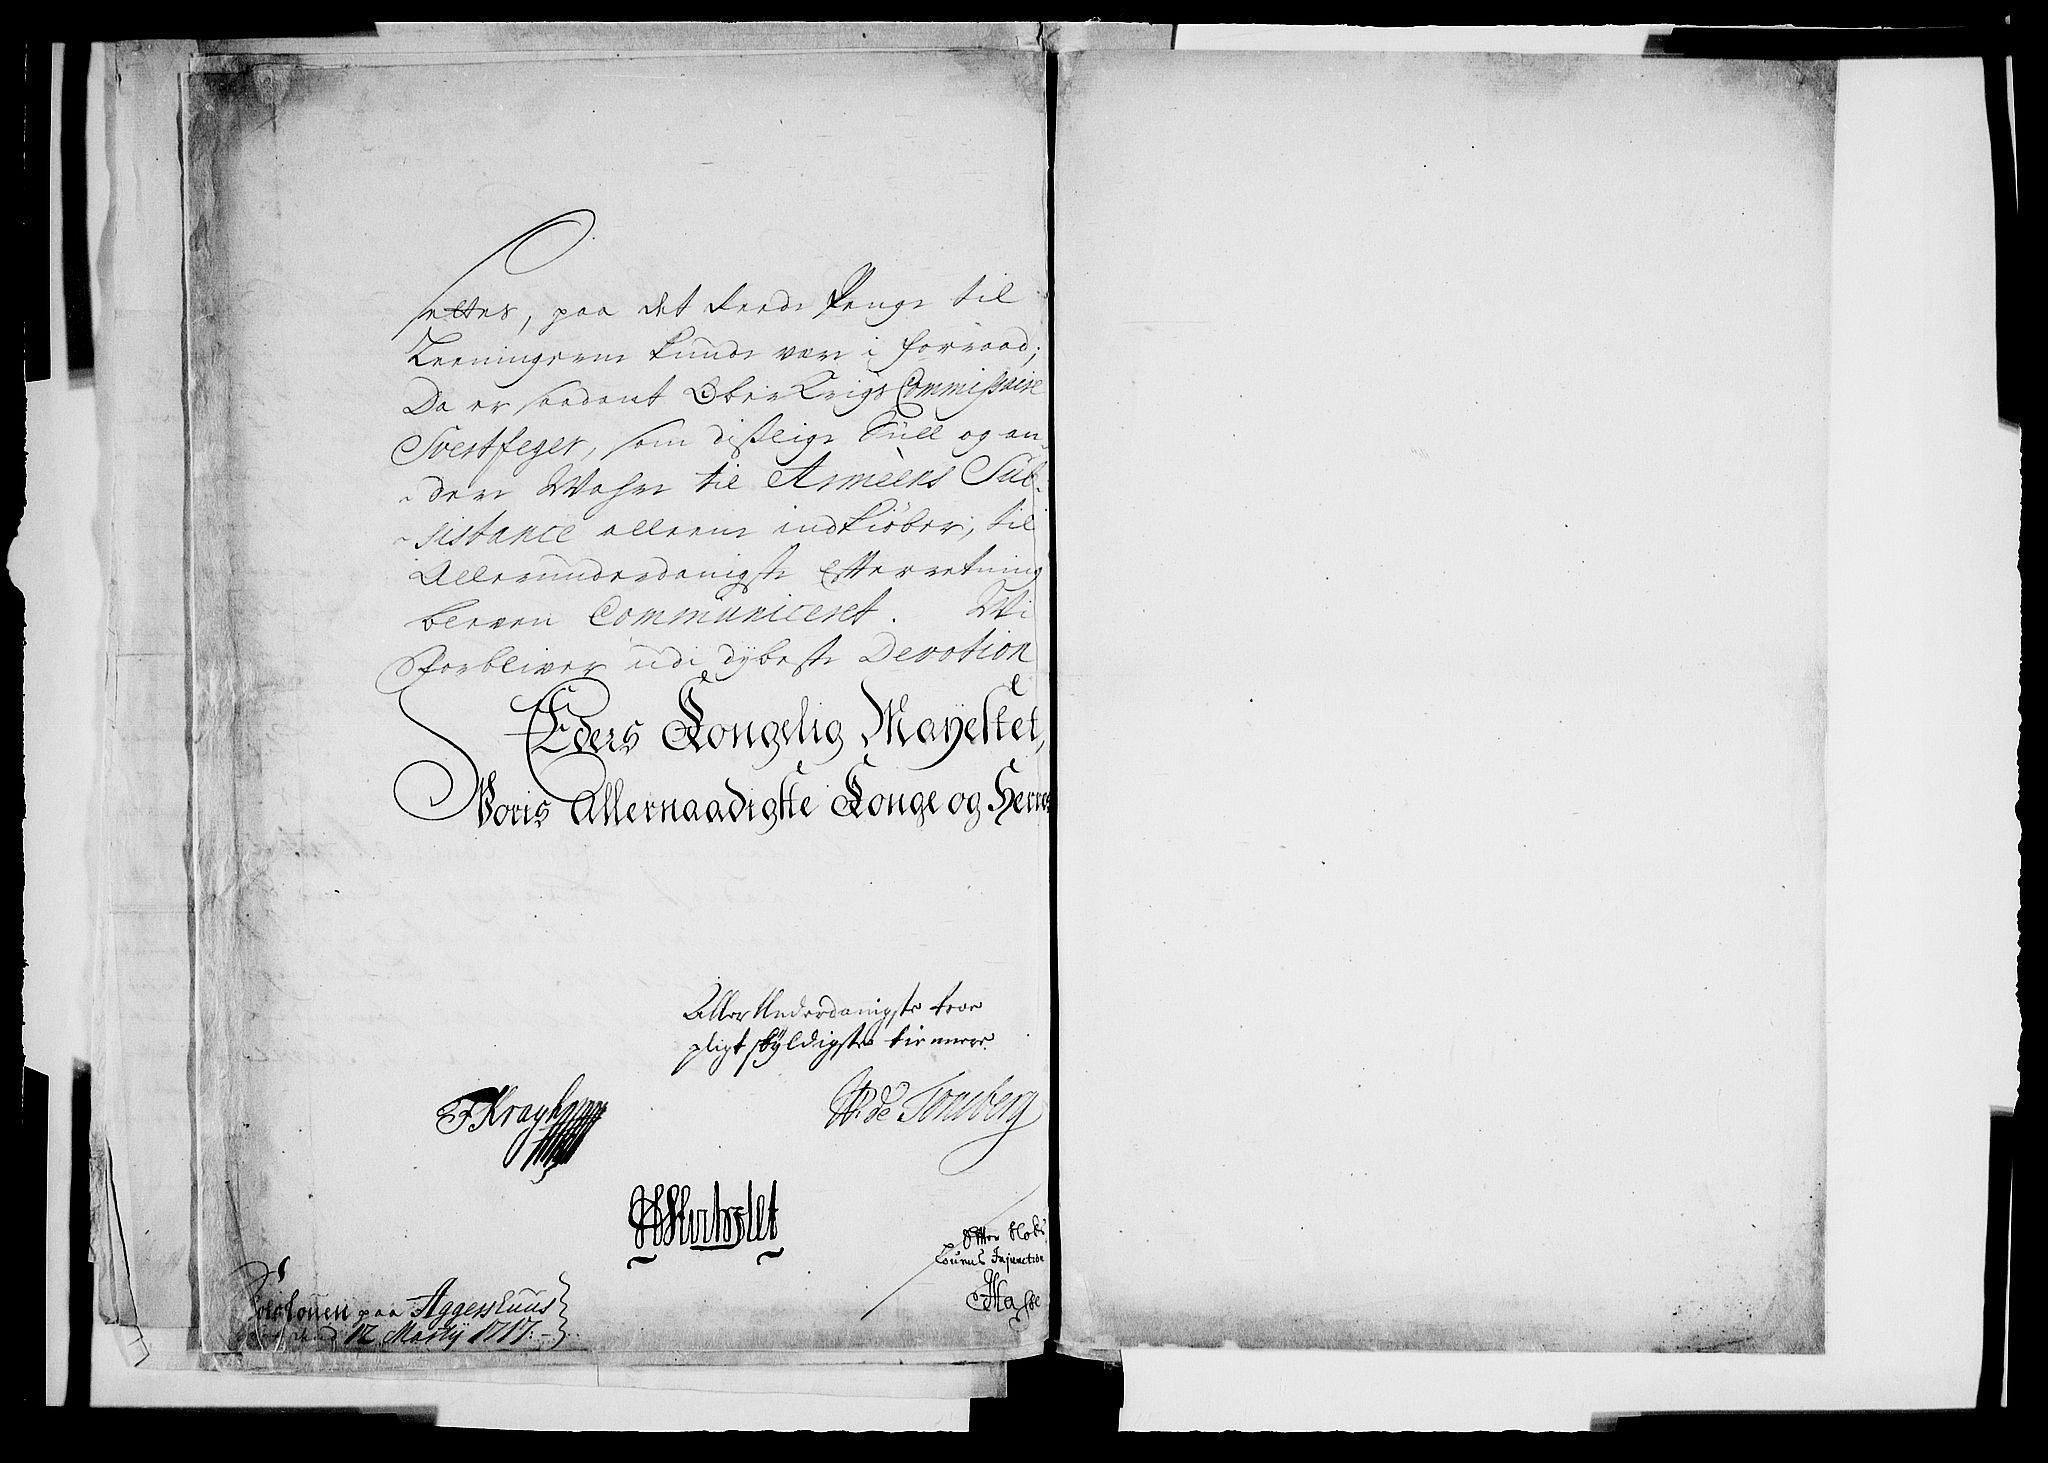 settes, paa det Reede Penge til
Leeningerne kunde være i forraad;
Da er saadant Ober Krigs Commissaire
Svertfeger, som dißlige Sull og an-
-dere Wahre til Armèens Sub-
-sistance alleene indkiøber, til
Allerunderdanigste Efterretning
bleven Communiceret. Wi
Forbliver udi dybeste Devotion
Eders Kongelig Mayestet,
Woris Allernaadigste Konge og Herres
Aller Underdanigste troe
pligt skyldigste tiennere
F Krag
W: de Tonsberg
Efter Slots
Lovens Injunction
Slotzlouen paa Aggershuus
den 12 Martij 1717.